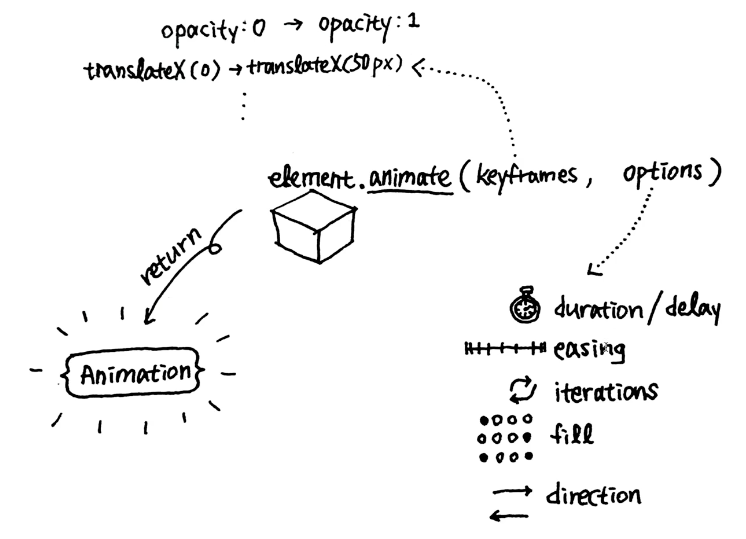 opacity:0 → opacity:1
translateX(0) → translateX(50px)
element.animate(keyframes, options)
return
Animation
duration/delay
easing
iterations
fill
direction